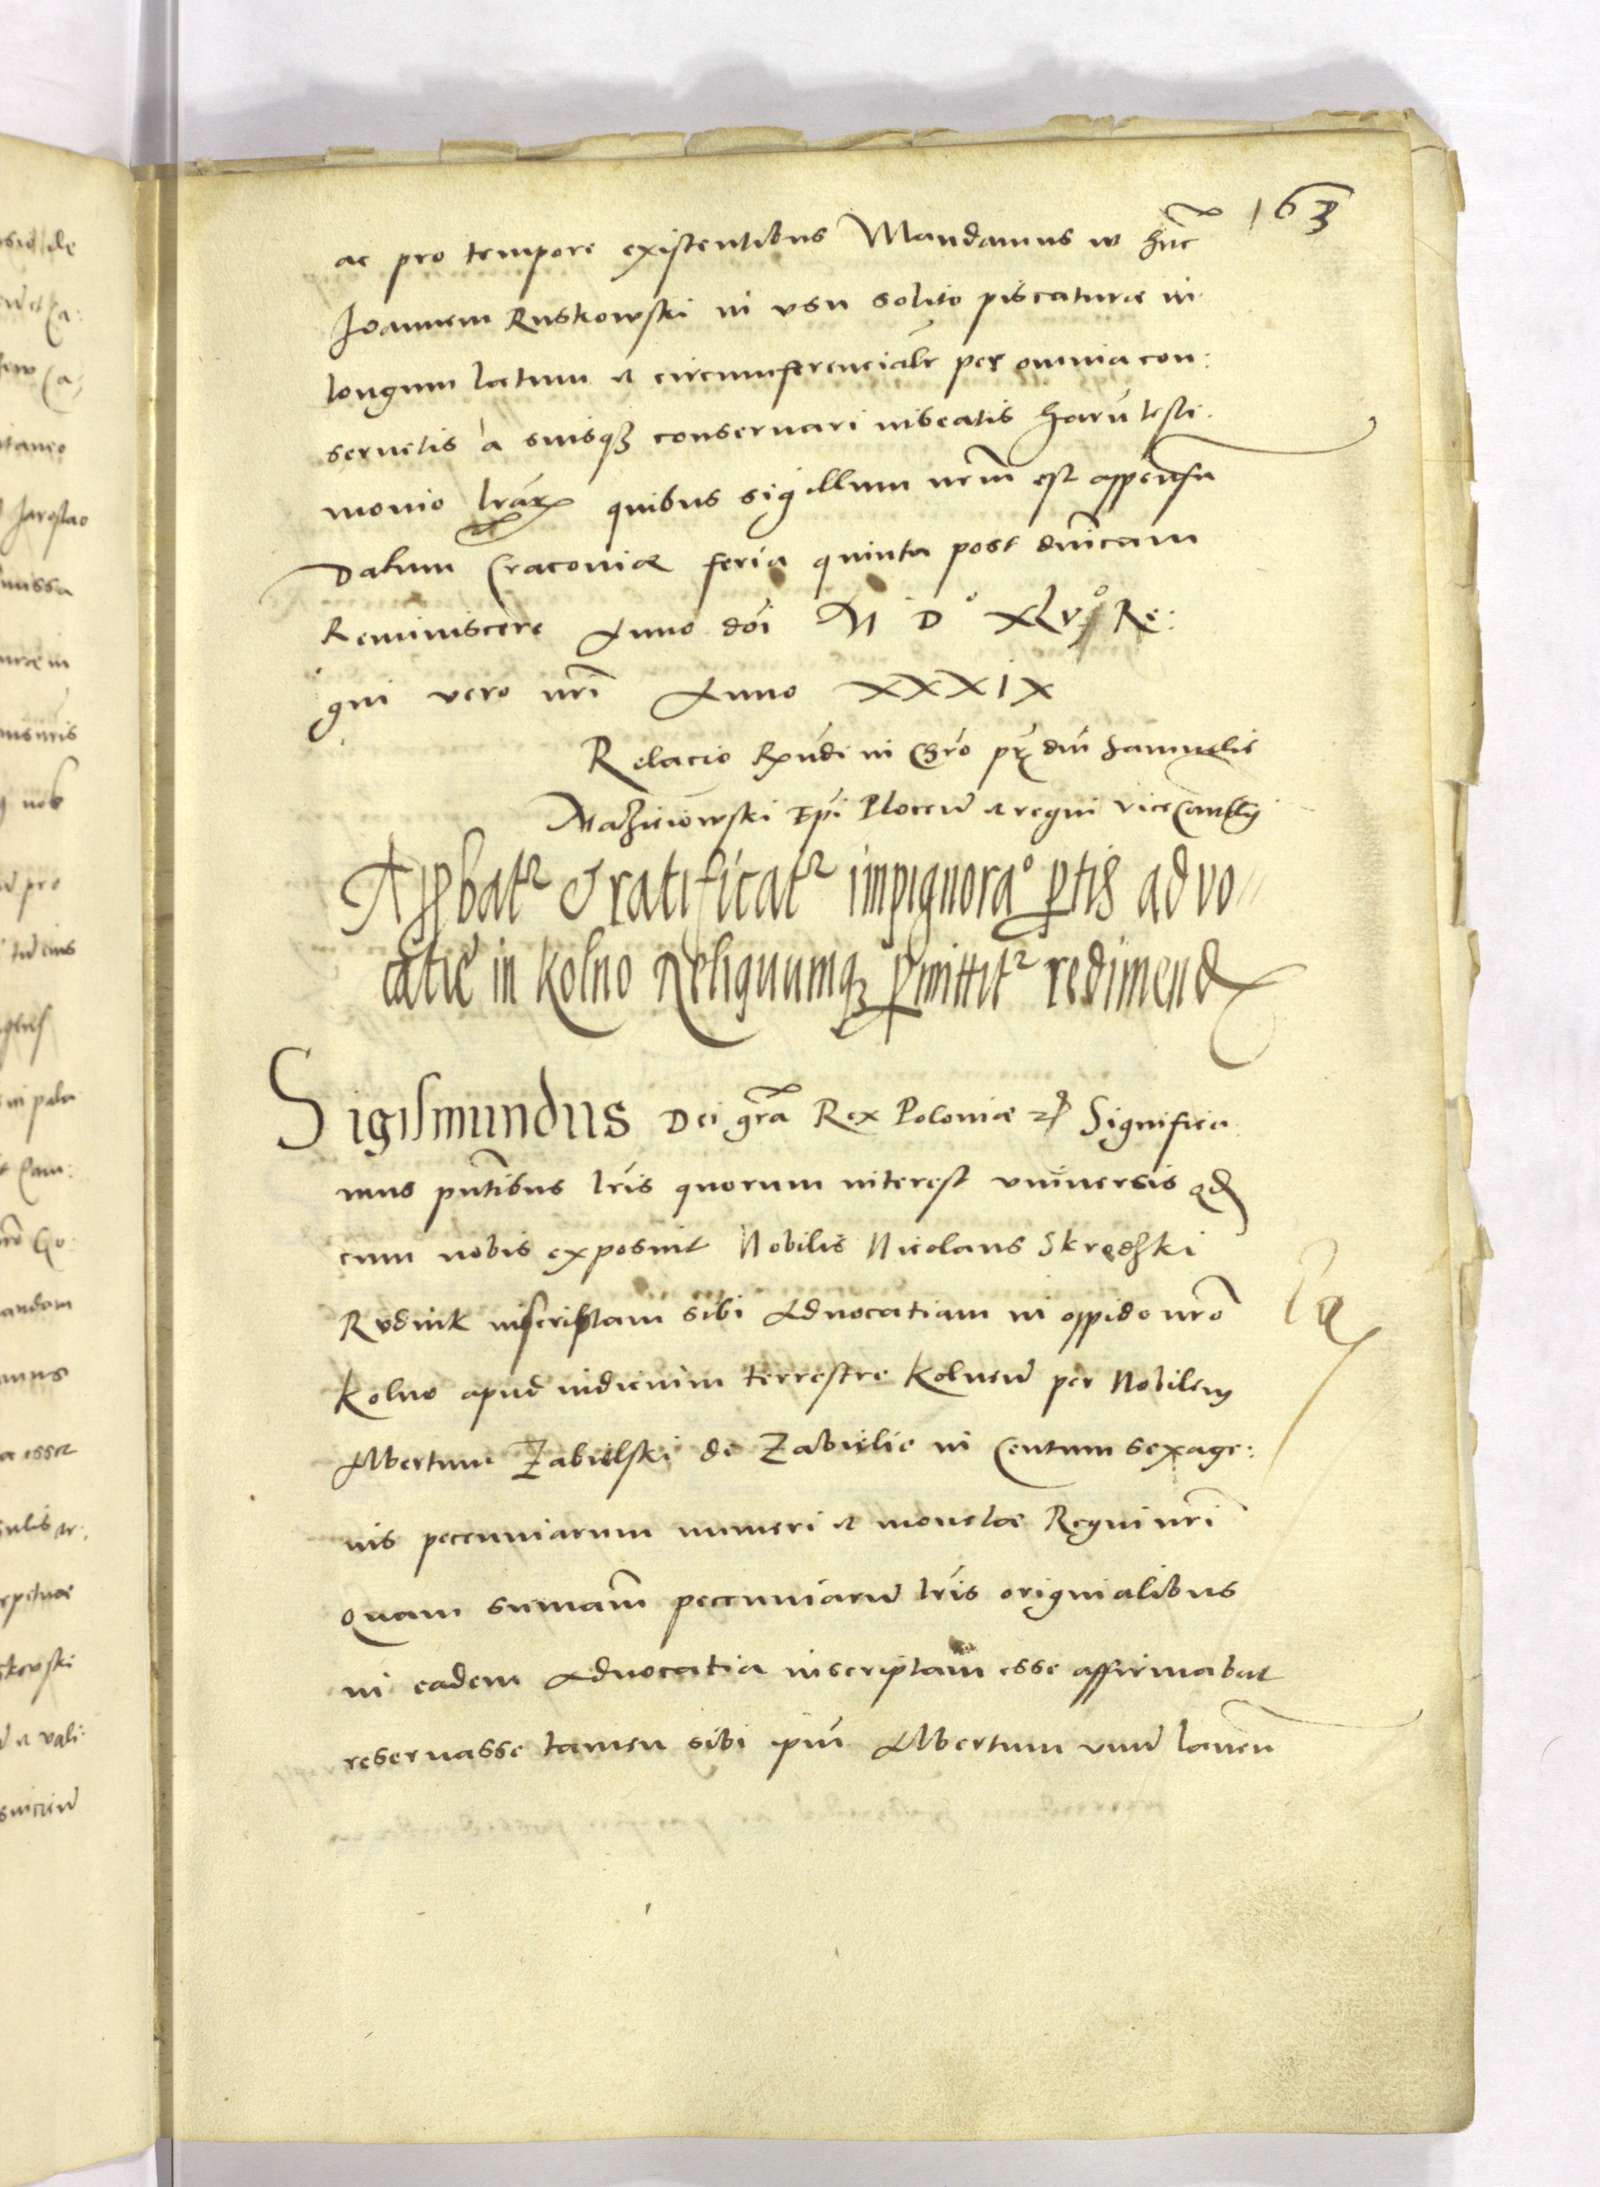 163
ac pro tempore existentibus Mandamus ut hũc
Joannem Ruskowski in usu solito piscaturæ in
longum latum et circumferencialr per omnia con:
servetis a suisq3 conservari iubeatis Harũ testi
monio lrãrum quibus sigillum nrm̃ est appensũ
Datum Cracoviæ feria quinta post dnĩcam
Reminiscere Anno dnĩ M D° XLV° Re:
gni vero nrĩ Anno XXXIX
Relacio Rndĩ in Chrõ prĩs dnĩ Samuelis
Maczieiowski Epĩ Plocen̄ et regni vicecancellarij
Approbatʳ et ratificatʳ impignora° ptis advo
catiæ in Kolno Reliquumq3 pmittitʳ redimend
Sigismundus Dei grã Rex Poloniæ etc Significa
mus pñtibus lrĩs quorum interest universis qd
cum nobis exposuit Nobilis Nicolaus Skrodzki
Rudnik inscriptam sibi Advocatiam in oppido nrõ
Kolno apud iudicium terrestre Kolnen̄ per Nobilem
Albertum Zabielski de Zabiele in Centum sexage:
nis pecuniarum numeri et monetæ Regni nrĩ
Quam summam̃ pecuniarũ lrĩs originalibus
in eadem Advocatia inscriptam esse affirmabat
reservasse tamen sibi ipm̃ Albertum unũ laneũ